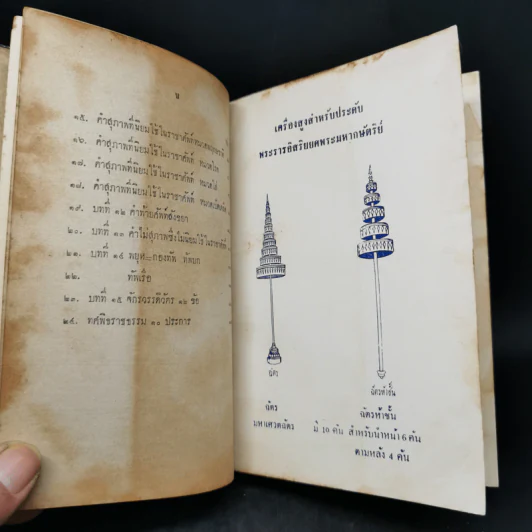 ข
๑๕. คำสุภาพที่นิยมใช้ในราชาศัพท์
๑๖. คำสุภาพที่นิยมใช้ในราชาศัพท์ หมวด
๑๗. คำสุภาพที่นิยมใช้ในราชาศัพท์ หมวด
๑๘. คำสุภาพที่นิยมใช้ในราชาศัพท์
๑๙. บทที่ ๑๒ คำท้ายศัพท์สังขยา
๒๐. บทที่ ๑๓ คำไม่สุภาพซึ่งไม่นิยมใช้ในราชาศัพท์
๒๑. บทที่ ๑๔ กองทัพ ทัพบก
๒๒. ทัพเรือ
๒๓. บทที่ ๑๕ จักรวรรดิวัตร ๑๒ ข้อ
๒๔. ทศพิธราชธรรม ๑๐ ประการ
เครื่องสูงสำหรับประดับ
พระราชอิสริยยศพระมหากษัตริย์
ฉัตร
ฉัตรห้าชั้น
ฉัตร
มหาเศวตฉัตร
ฉัตรห้าชั้น
มี 10 คัน สำหรับนำหน้า 6 คัน
ตามหลัง 4 คัน